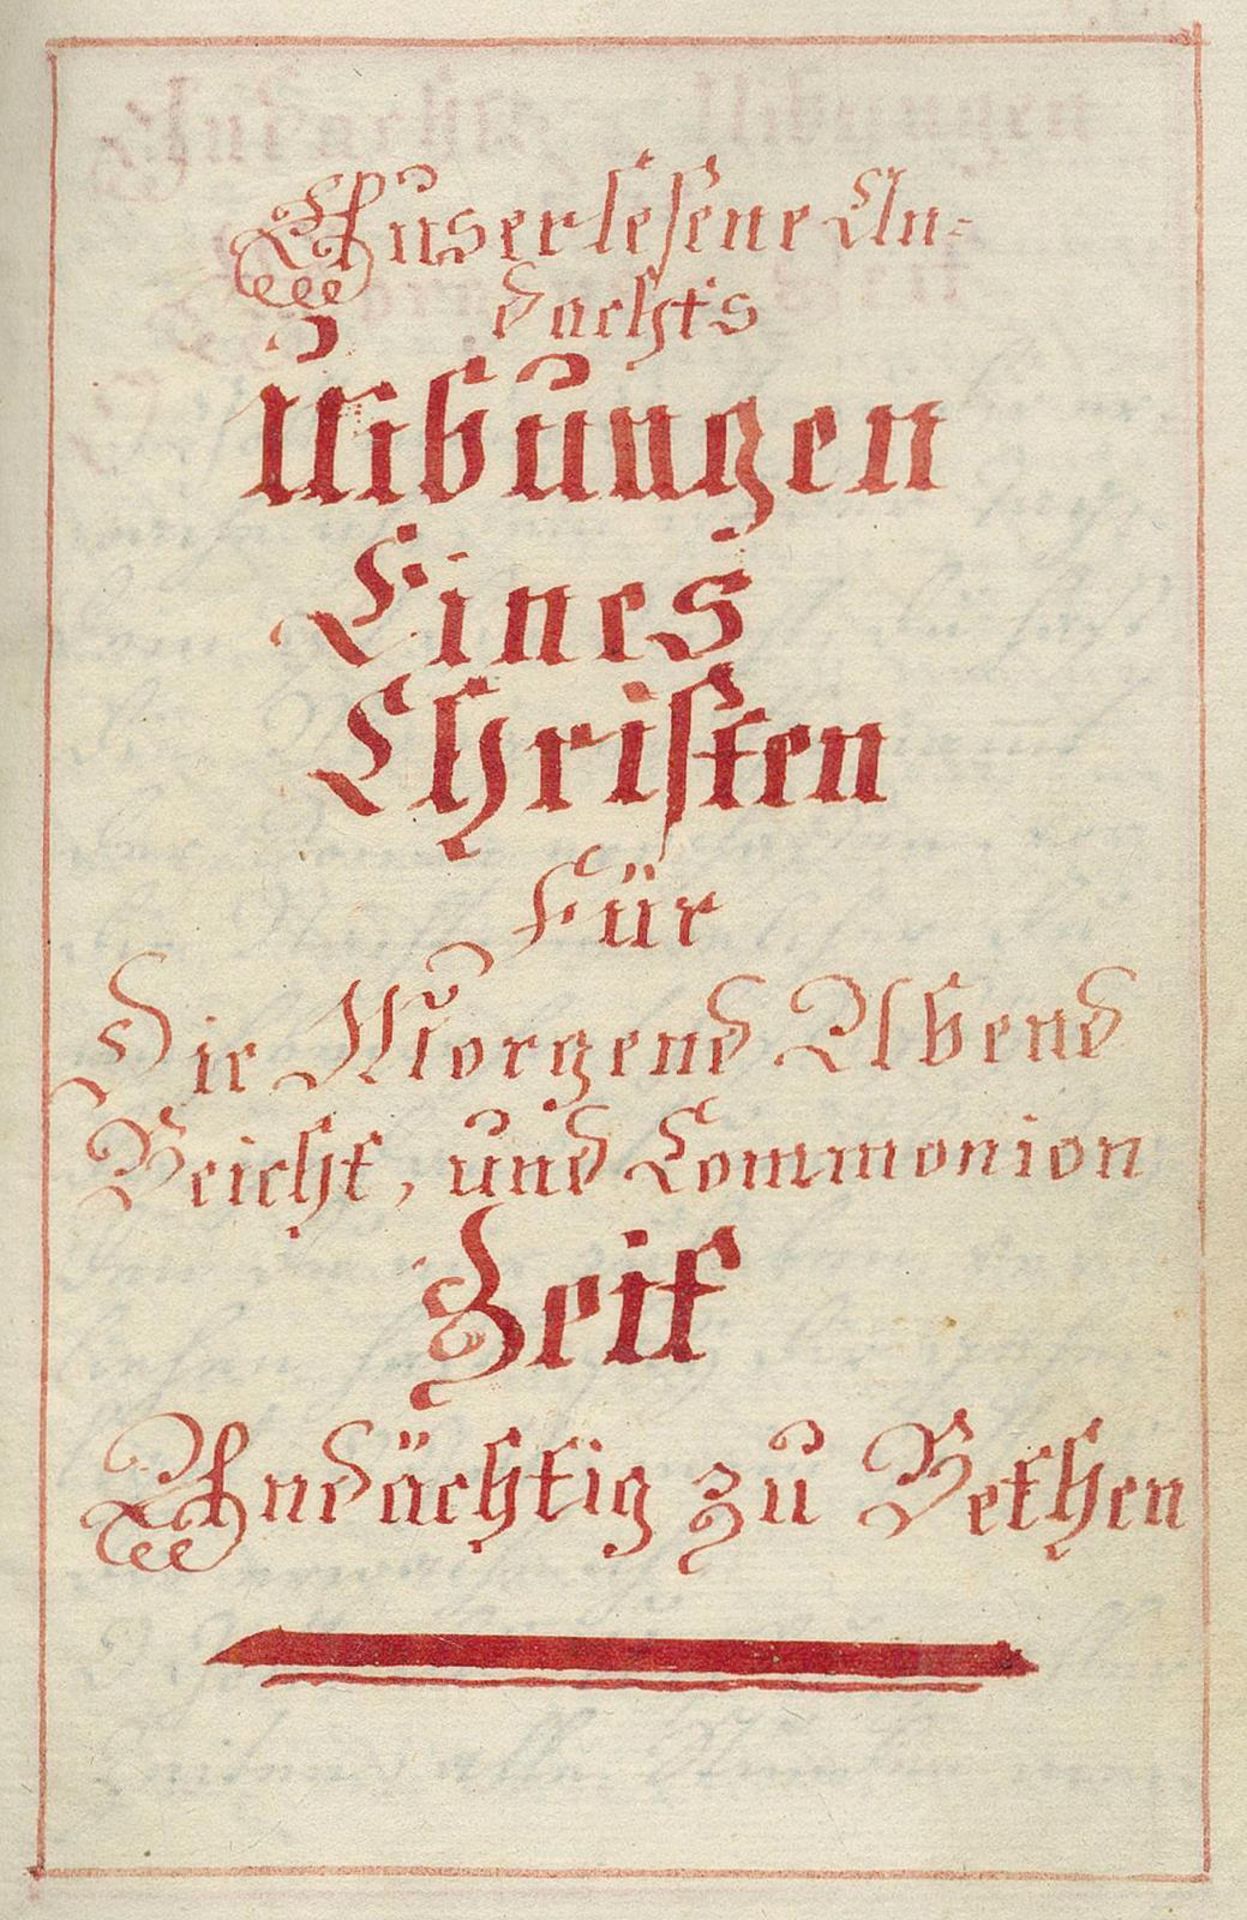 Auserlesene An=
dachts
Uibungen
Eines
Christen
Für
Die Morgend Abend
Beicht, und Commonion
Zeit
Andächtig zu Bethen